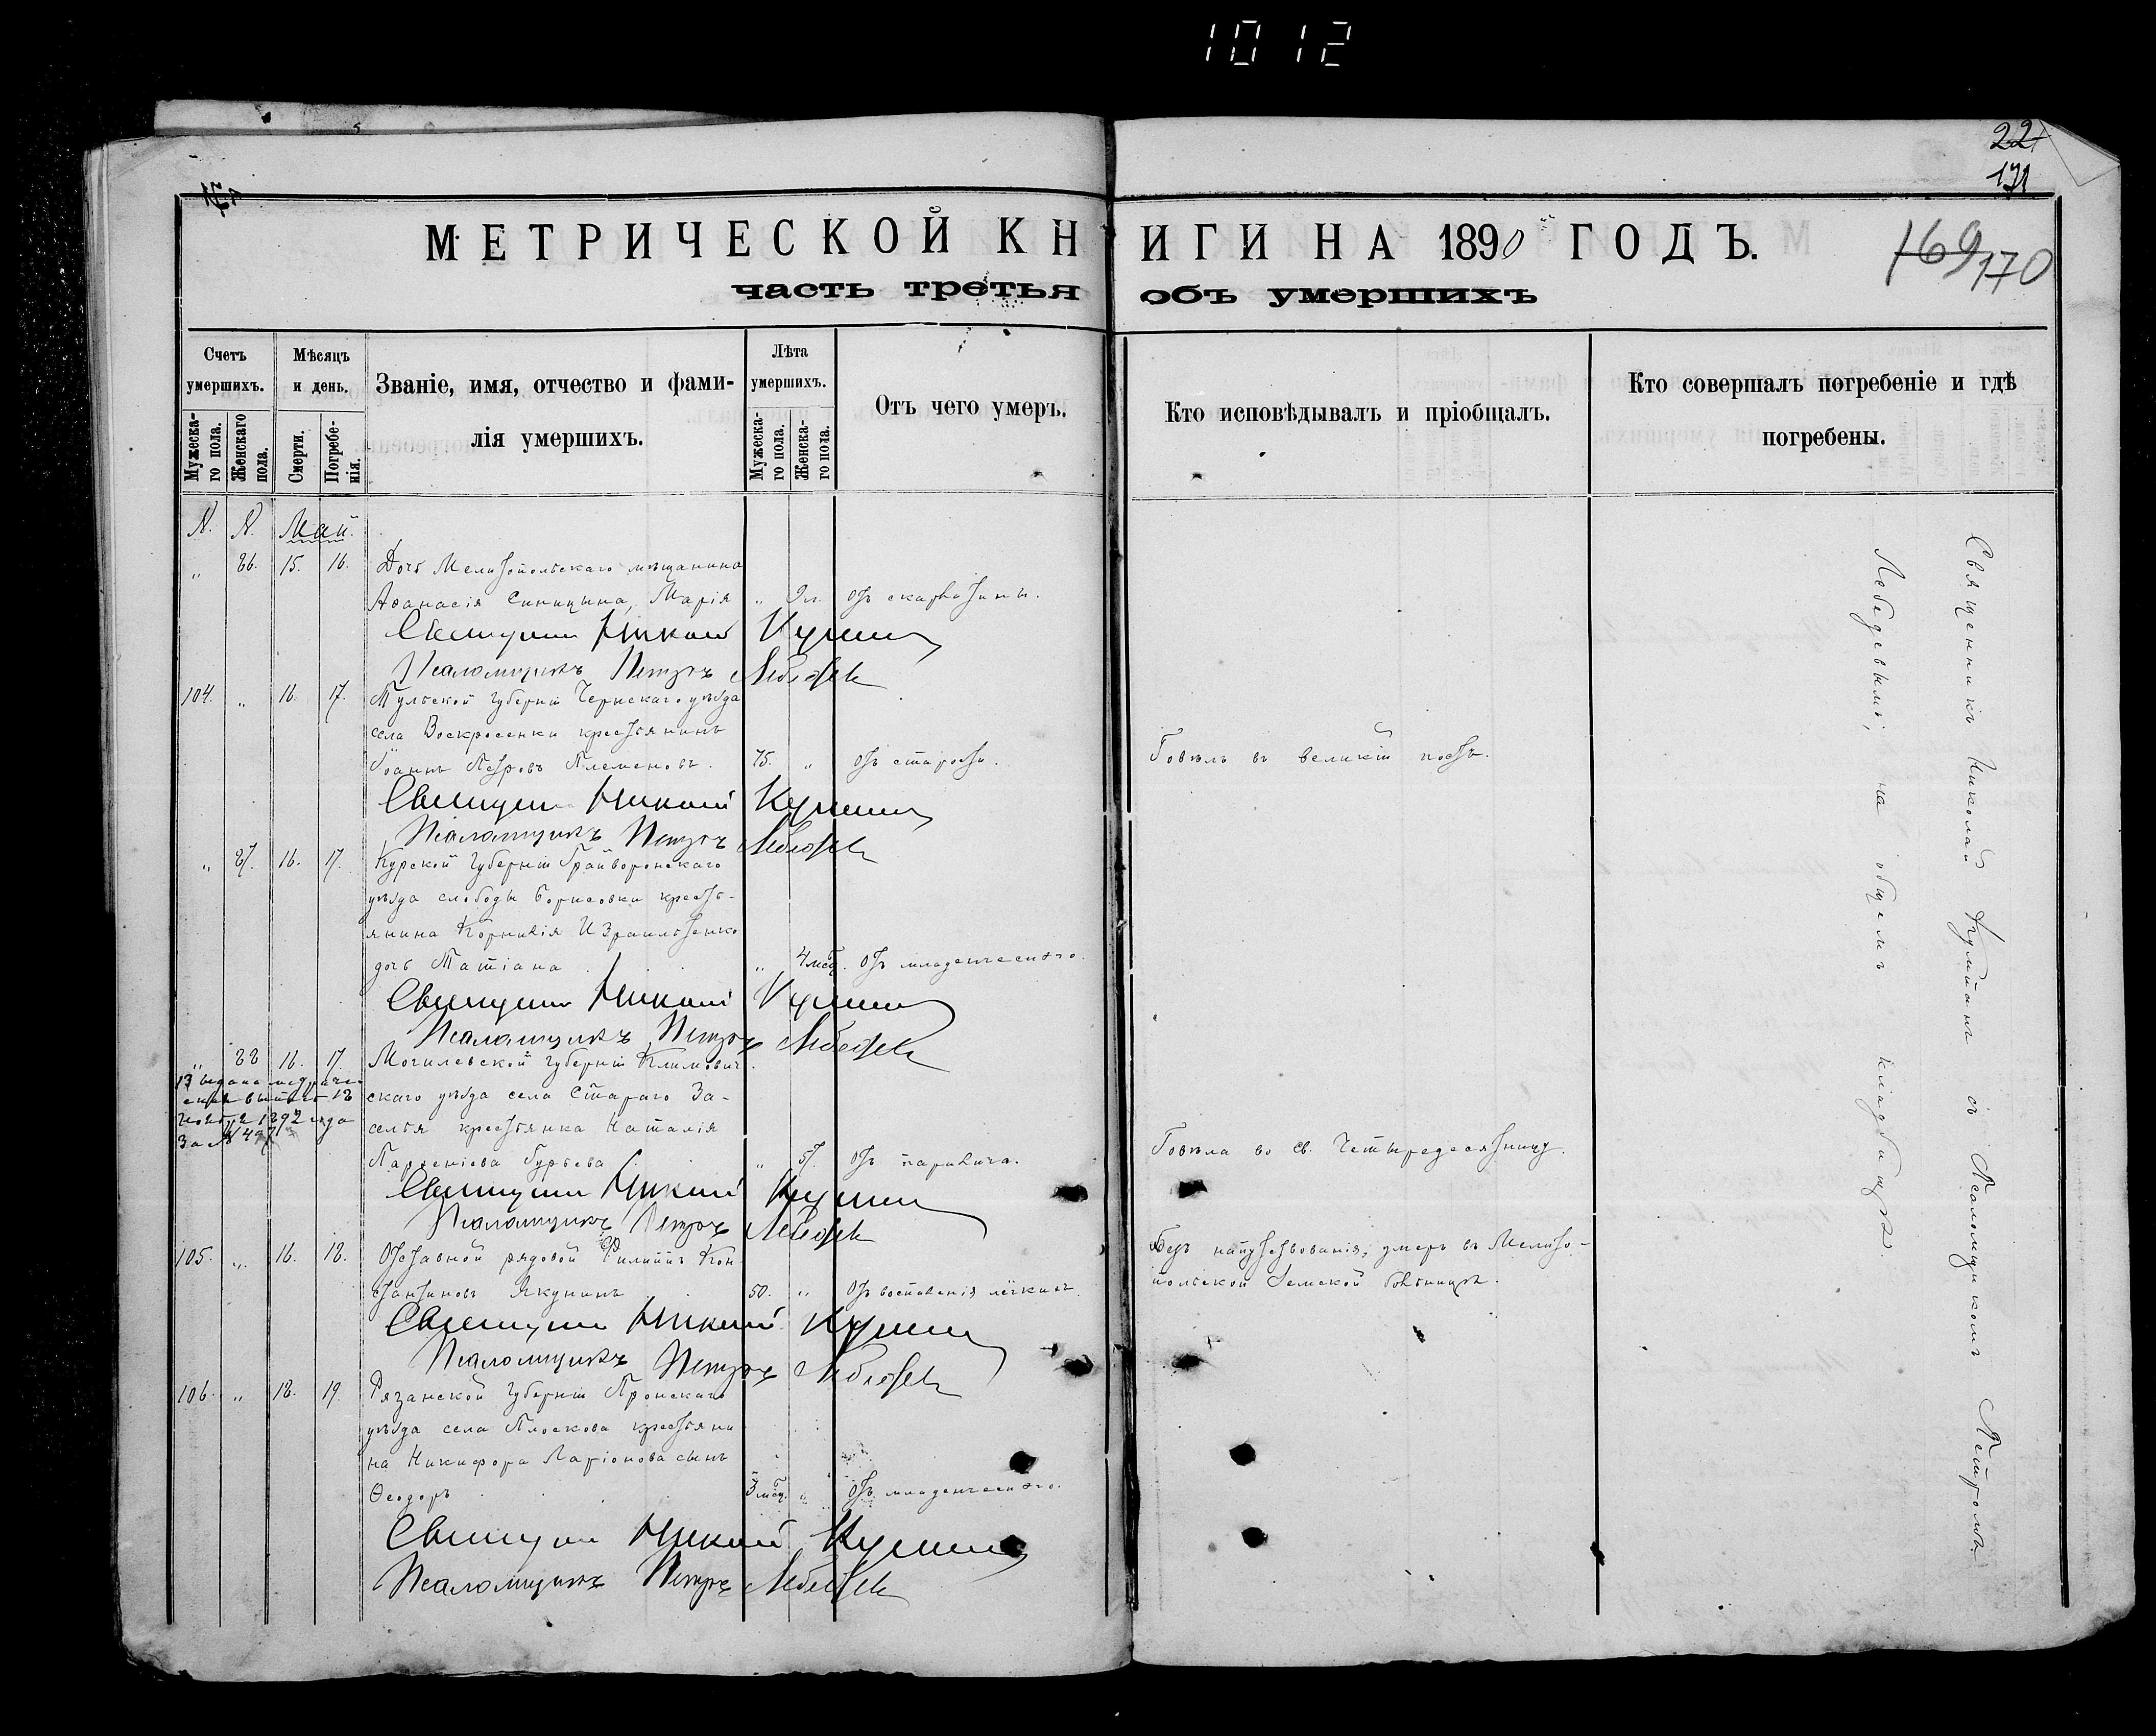 1012
22
171
169 170
МЕТРИЧЕСКОЙ КНИГИ НА 1890 ГОДЪ.
часть третья объ умершихъ
Счетъ умершихъ.
Мужескаго пола.
Женскаго пола.
Мѣсяцъ и день.
Смерти.
Погребенія.
Званіе, имя, отчество и фами-
лія умершихъ.
Лѣта умершихъ.
Мужескаго пола.
Женскаго пола.
Отъ чего умеръ.
Кто исповѣдывалъ и пріобщалъ.
Кто совершалъ погребеніе и гдѣ
погребены.
N. N. Май.
„ 86. 15. 16. Дочь Мелитопольскаго мѣщанина
Аѳанасія Синицына, Марія „ 9л. отъ скарлатины.
Священникъ Николай
Псаломщикъ Петръ Лебедевъ
104. „ 16. 17. Тульской губерніи Чернскаго уѣзда
села Воскресенки крестьянинъ
Іоаннъ Петровъ 75. „ отъ старости. Говѣлъ въ великій постъ.
Священникъ Николай
Псаломщикъ Петръ Лебедевъ
„ 87. 16. 17. Курской губерніи Грайворонскаго
уѣзда слободы Борисовки кресть-
янина Корнилія Израильтенко
дочь Татіана „ 4 мѣс. отъ младенческаго.
Священникъ Николай
Псаломщикъ Петръ Лебедевъ
„ 88 16. 17. Могилевской губерніи Климович-
скаго уѣзда села Стараго За-
селья крестьянка Наталія
Парѳеніева Гурьева „ 57. отъ паралича. Говѣла во св. Четыредесятницу.
Священникъ Николай
Псаломщикъ Петръ Лебедевъ
105. „ 16. 18. Отставной рядовой Филиппъ Кон-
стантиновъ Якунинъ 50. „ отъ воспаленія лёгкихъ.
Безъ напутствованія; умеръ въ Мелито-
польской Земской больницѣ.
Священникъ Николай
Псаломщикъ Петръ Лебедевъ
106. „ 18. 19. Рязанской губерніи Пронскаго
уѣзда села Плоскова крестьяни-
на Никифора Ларіонова сынъ
Ѳеодоръ 3 мѣс. „ отъ младенческаго.
Священникъ Николай
Псаломщикъ Петръ Лебедевъ
Священникъ Николай съ Псаломщикомъ Петромъ
Лебедевымъ, на общемъ кладбищѣ.